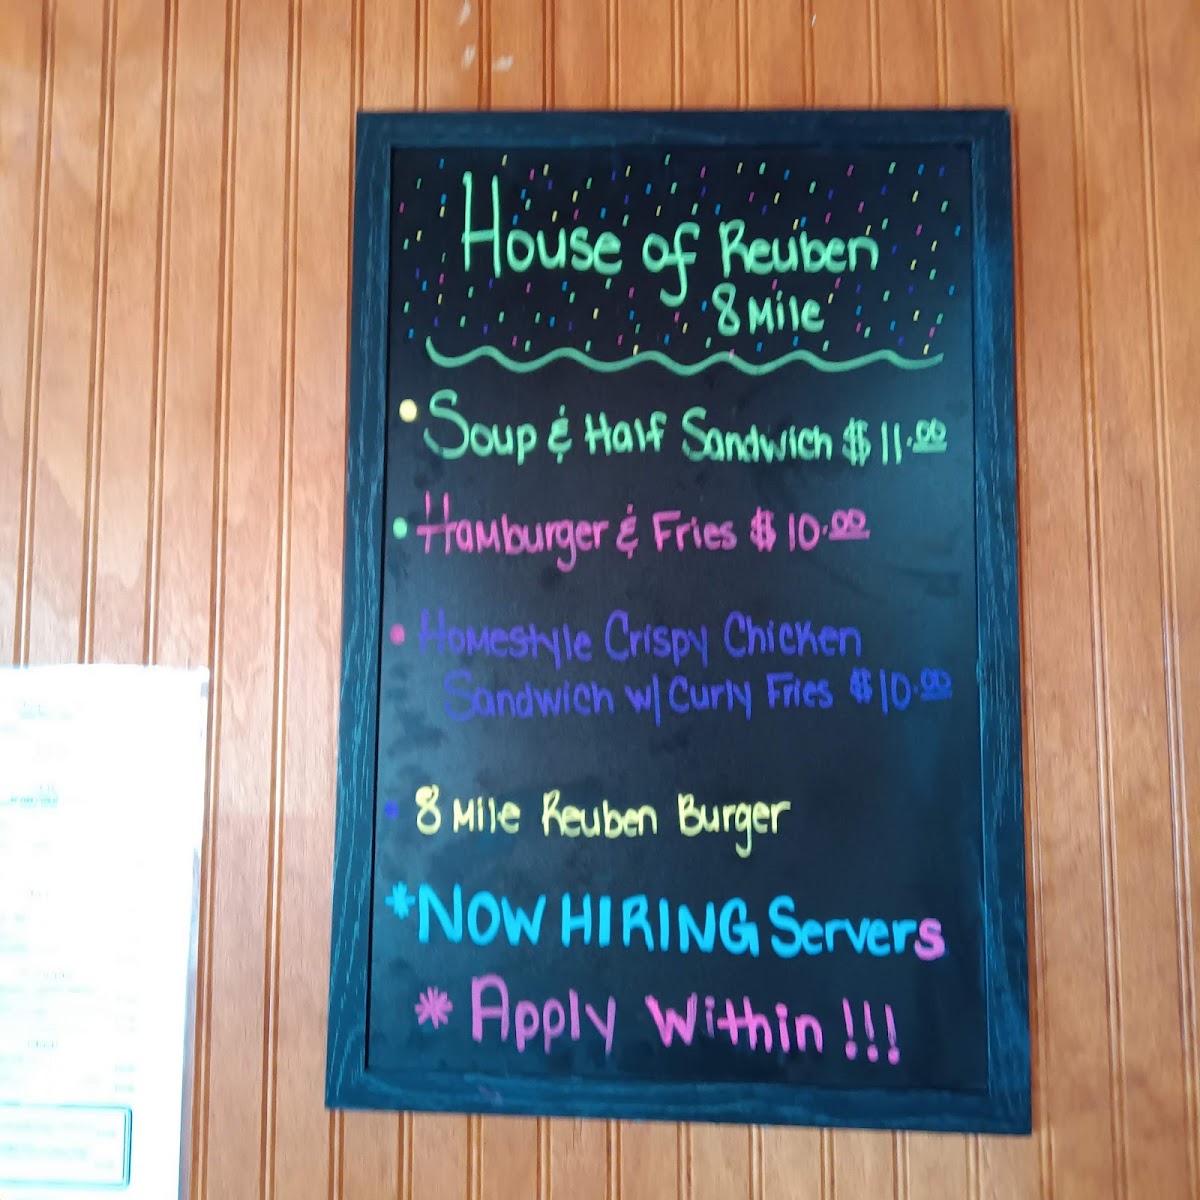 House of Reuben
8 Mile
• Soup & Half Sandwich $11.00
• Hamburger & Fries $10.00
• Homestyle Crispy Chicken
Sandwich w/ Curly Fries $10.00
• 8 Mile Reuben Burger
*NOW HIRING Servers
* Apply Within !!!